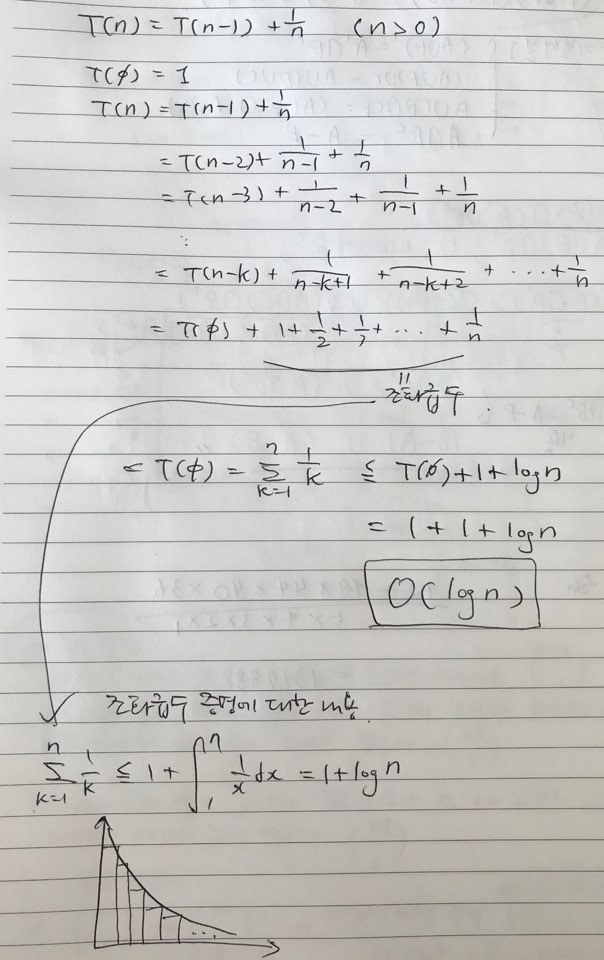 T(n) = T(n-1) + 1/n (n>0)
T(ϕ) = 1
T(n) = T(n-1) + 1/n
= T(n-2) + 1/(n-1) + 1/n
= T(n-3) + 1/(n-2) + 1/(n-1) + 1/n
⋮
= T(n-k) + 1/(n-k+1) + 1/(n-k+2) + ... + 1/n
= T(ϕ) + 1 + 1/2 + 1/3 + ... + 1/n
= 조화급수.
= T(ϕ) = ∑_{k=1}^{n} 1/k ≦ T(ϕ) + 1 + log n
= 1 + 1 + log n
O(log n)
조화급수 증명에 대한 내용.
∑_{k=1}^{n} 1/k ≦ 1 + ∫_{1}^{n} 1/x dx = 1 + log n
...